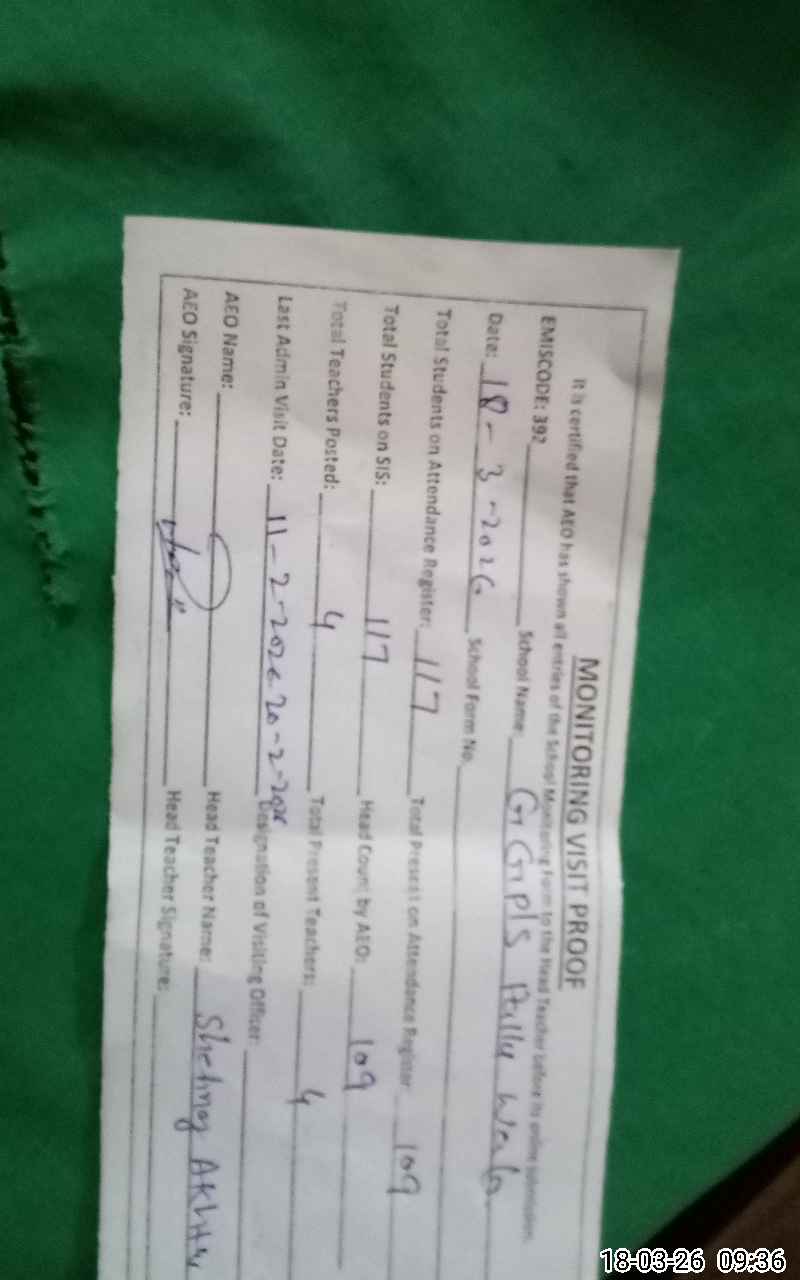 MONITORING VISIT PROOF
It is certified that AEO has shown all entries of the School Monitoring Form to the Head Teacher before its online submission.
EMISCODE: 392 School Name: GGPLS Wala
Date: 18-3-2026 School Form No.
Total Students on Attendance Register: 117 Total Present on Attendance Register 109
Total Students on SIS: 117 Head Count by AEO: 109
Total Teachers Posted: 4 Total Present Teachers: 4
Last Admin Visit Date: 11-2-2026 20-2-2026 Designation of Visiting Officer:
AEO Name: Head Teacher Name:
AEO Signature: Head Teacher Signature:
18-03-26 09:36